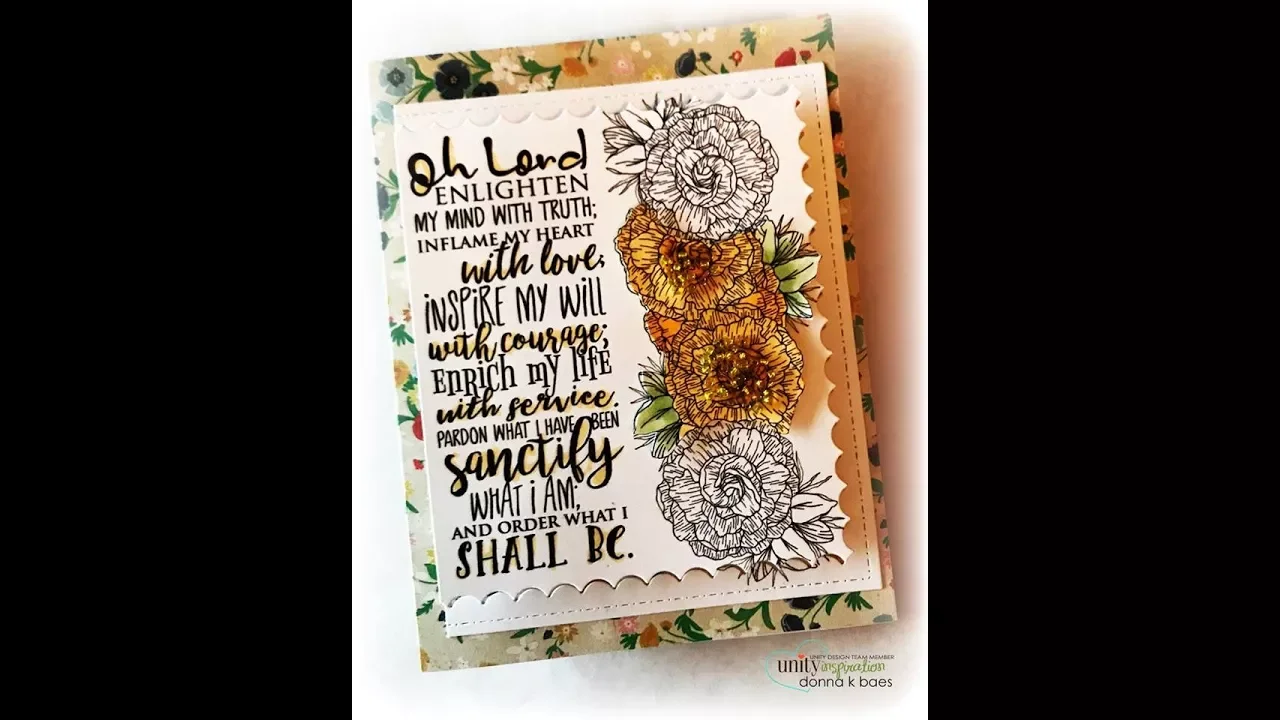 Oh Lord
ENLIGHTEN
MY MIND WITH TRUTH;
INFLAME MY HEART
with love;
iNSPiRE MY WiLL
with courage;
ENRICH MY LIFE
with service.
PARDON WHAT I HAVE BEEN
sanctify
WHAT i AM;
AND ORDER WHAT I
SHALL BE.
UNITY DESIGN TEAM MEMBER
unity inspiration
donna k baes